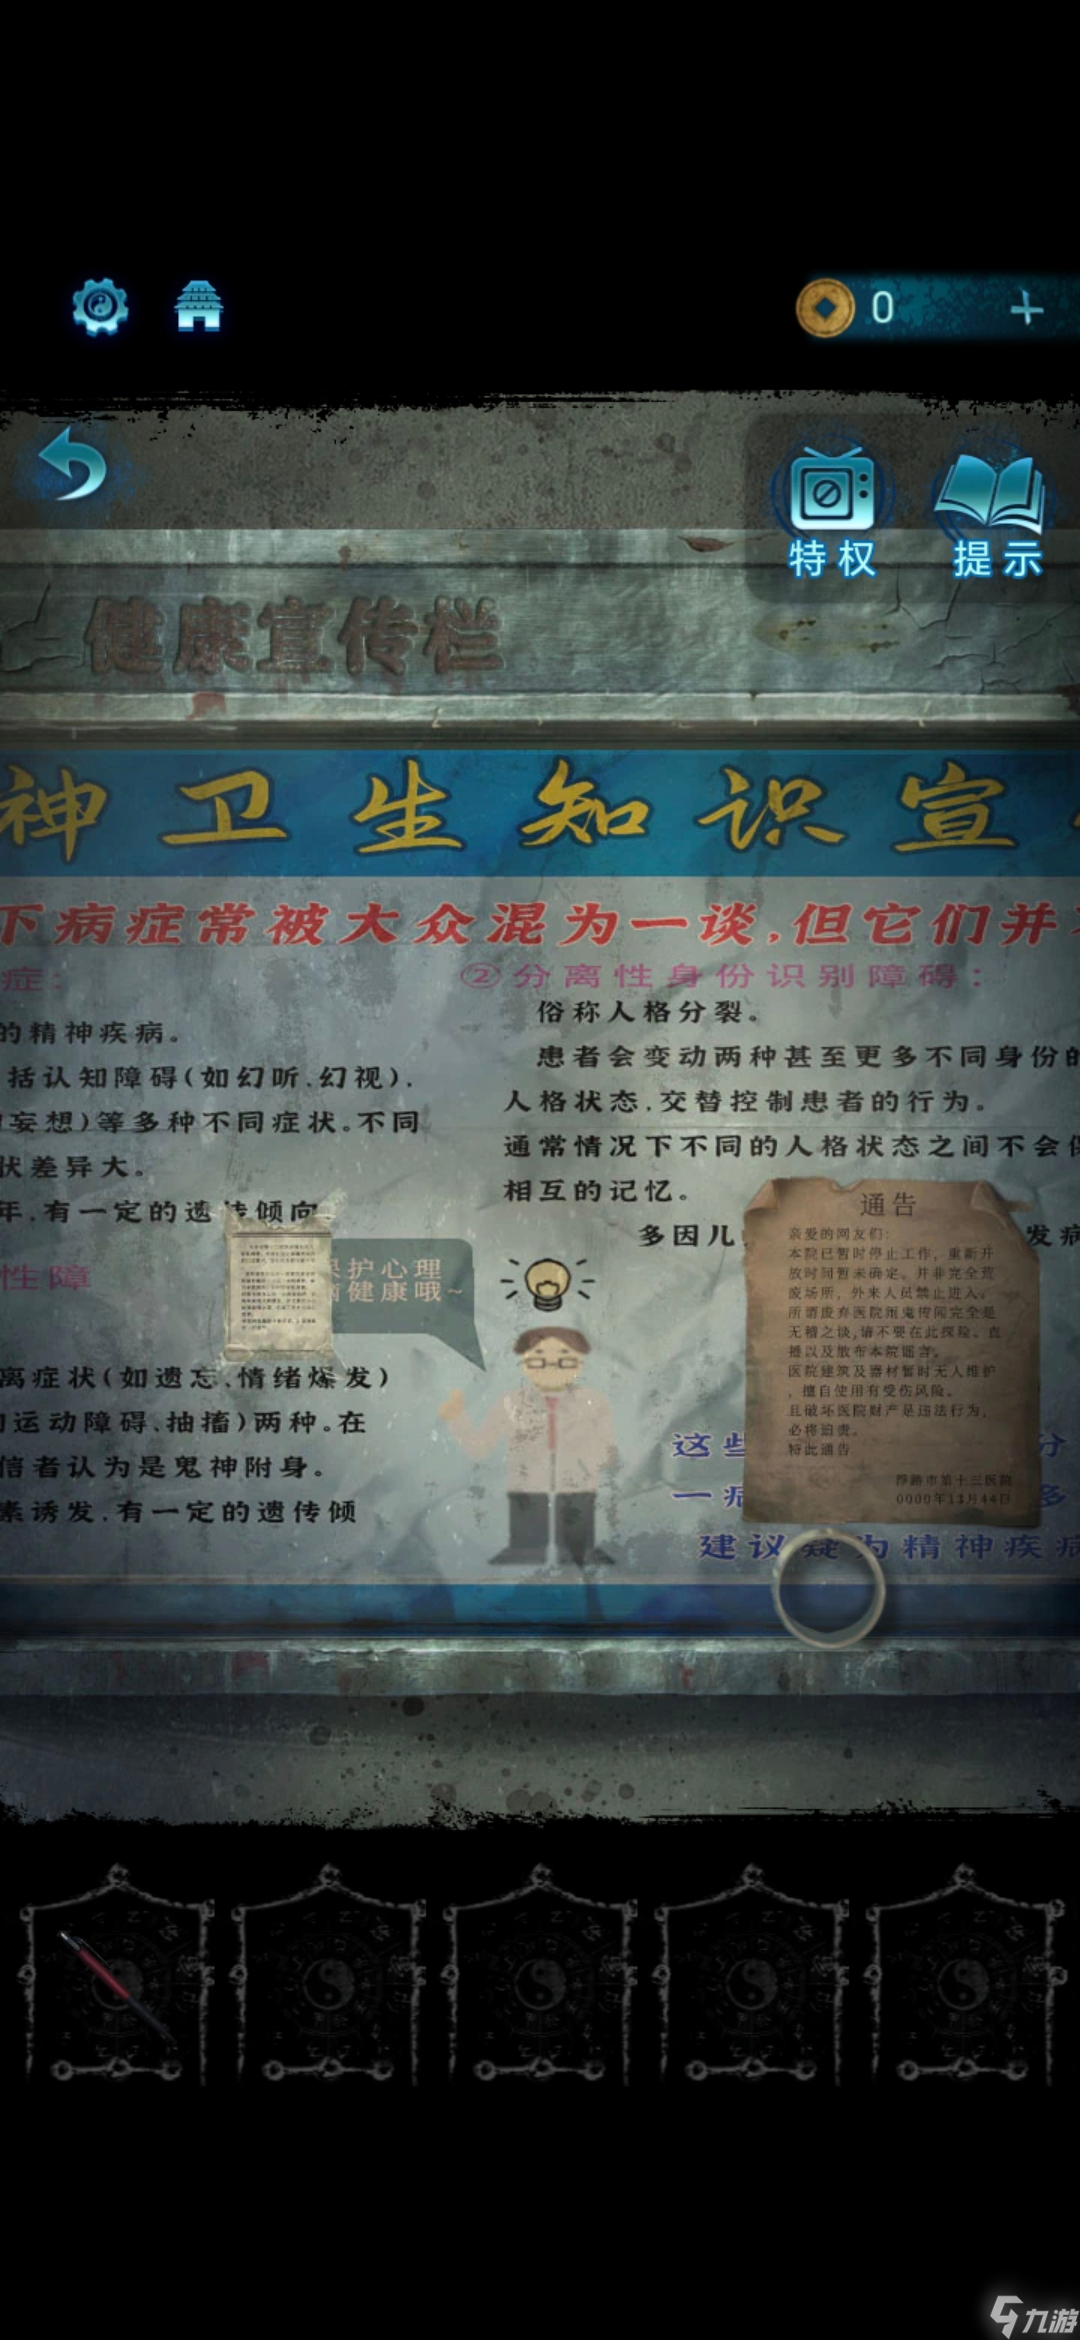 0
特权
提示
健康宣传栏
神卫生知识宣
下病症常被大众混为一谈,但它们并
症:
的精神疾病。
括认知障碍(如幻听、幻视)、
妄想)等多种不同症状。不同
状差异大。
年,有一定的遗传倾向
性障
离症状(如遗忘、情绪爆发)
运动障碍、抽搐)两种。在
信者认为是鬼神附身。
素诱发,有一定的遗传倾
②分离性身份识别障碍:
俗称人格分裂。
患者会变动两种甚至更多不同身份的
人格状态,交替控制患者的行为。
通常情况下不同的人格状态之间不会
相互的记忆。
多因儿
发病
护心理
健康哦~
通告
亲爱的网友们:
本院已暂时停止工作,重新开
放时间暂未确定。并非完全荒
废场所,外来人员禁止进入。
所谓废弃医院闹鬼传闻完全是
无稽之谈,请不要在此探险、直
播以及散布本院谣言。
医院建筑及器材暂时无人维护
,擅自使用有受伤风险。
且破坏医院财产是违法行为,
必将追责。
特此通告
市第十三医院
0000年13月44日
这些
分
一病
多
建议疑为精神疾病
九游